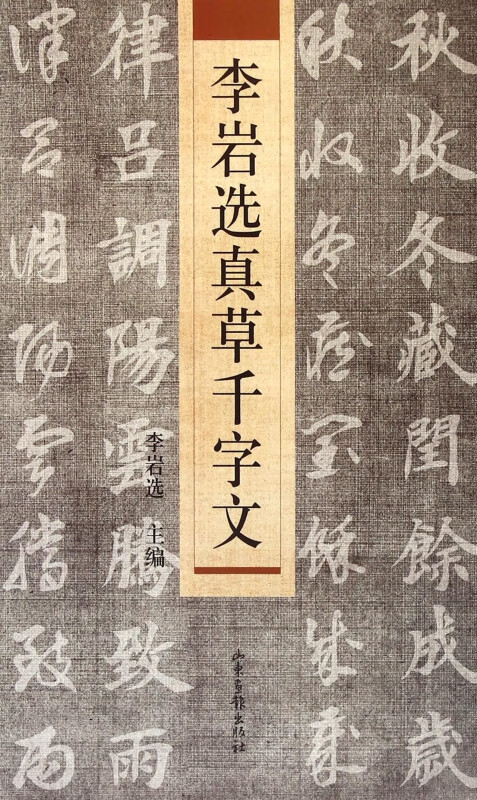 秋收冬藏閏餘成歲
秋收冬藏閏餘成歲
李岩选真草千字文
李岩选 主编
山东画报出版社
律吕調陽雲騰致雨
律吕調陽雲騰致雨